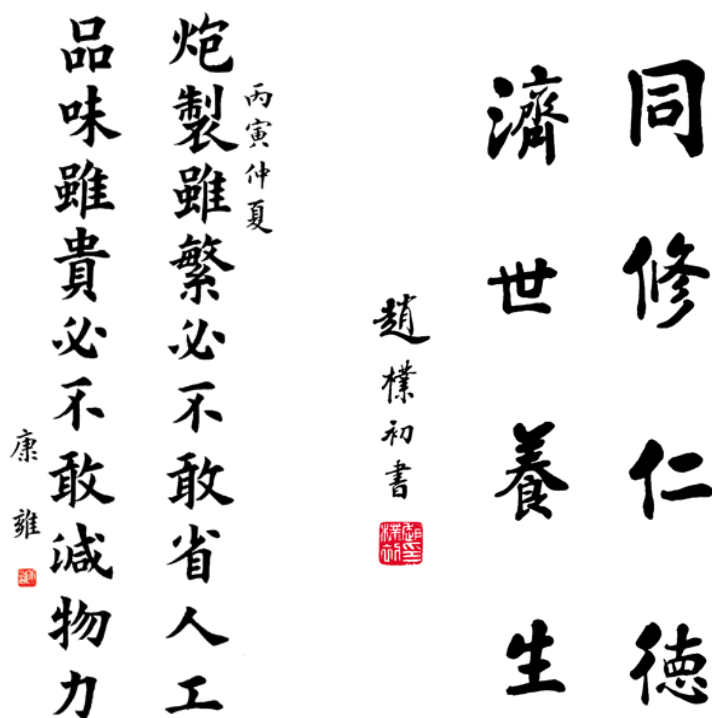 同修仁德
濟世養生
趙樸初書
丙寅仲夏
炮製雖繁必不敢省人工
品味雖貴必不敢減物力
康雍